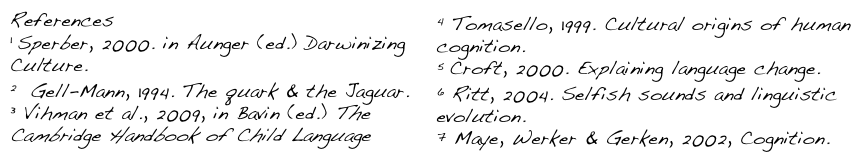 References
¹ Sperber, 2000. in Aunger (ed.) Darwinizing
Culture.
² Gell-Mann, 1994. The quark & the Jaguar.
³ Vihman et al., 2009, in Bavin (ed.) The
Cambridge Handbook of Child Language
⁴ Tomasello, 1999. Cultural origins of human
cognition.
⁵ Croft, 2000. Explaining language change.
⁶ Ritt, 2004. Selfish sounds and linguistic
evolution.
⁷ Maye, Werker & Gerken, 2002, Cognition.